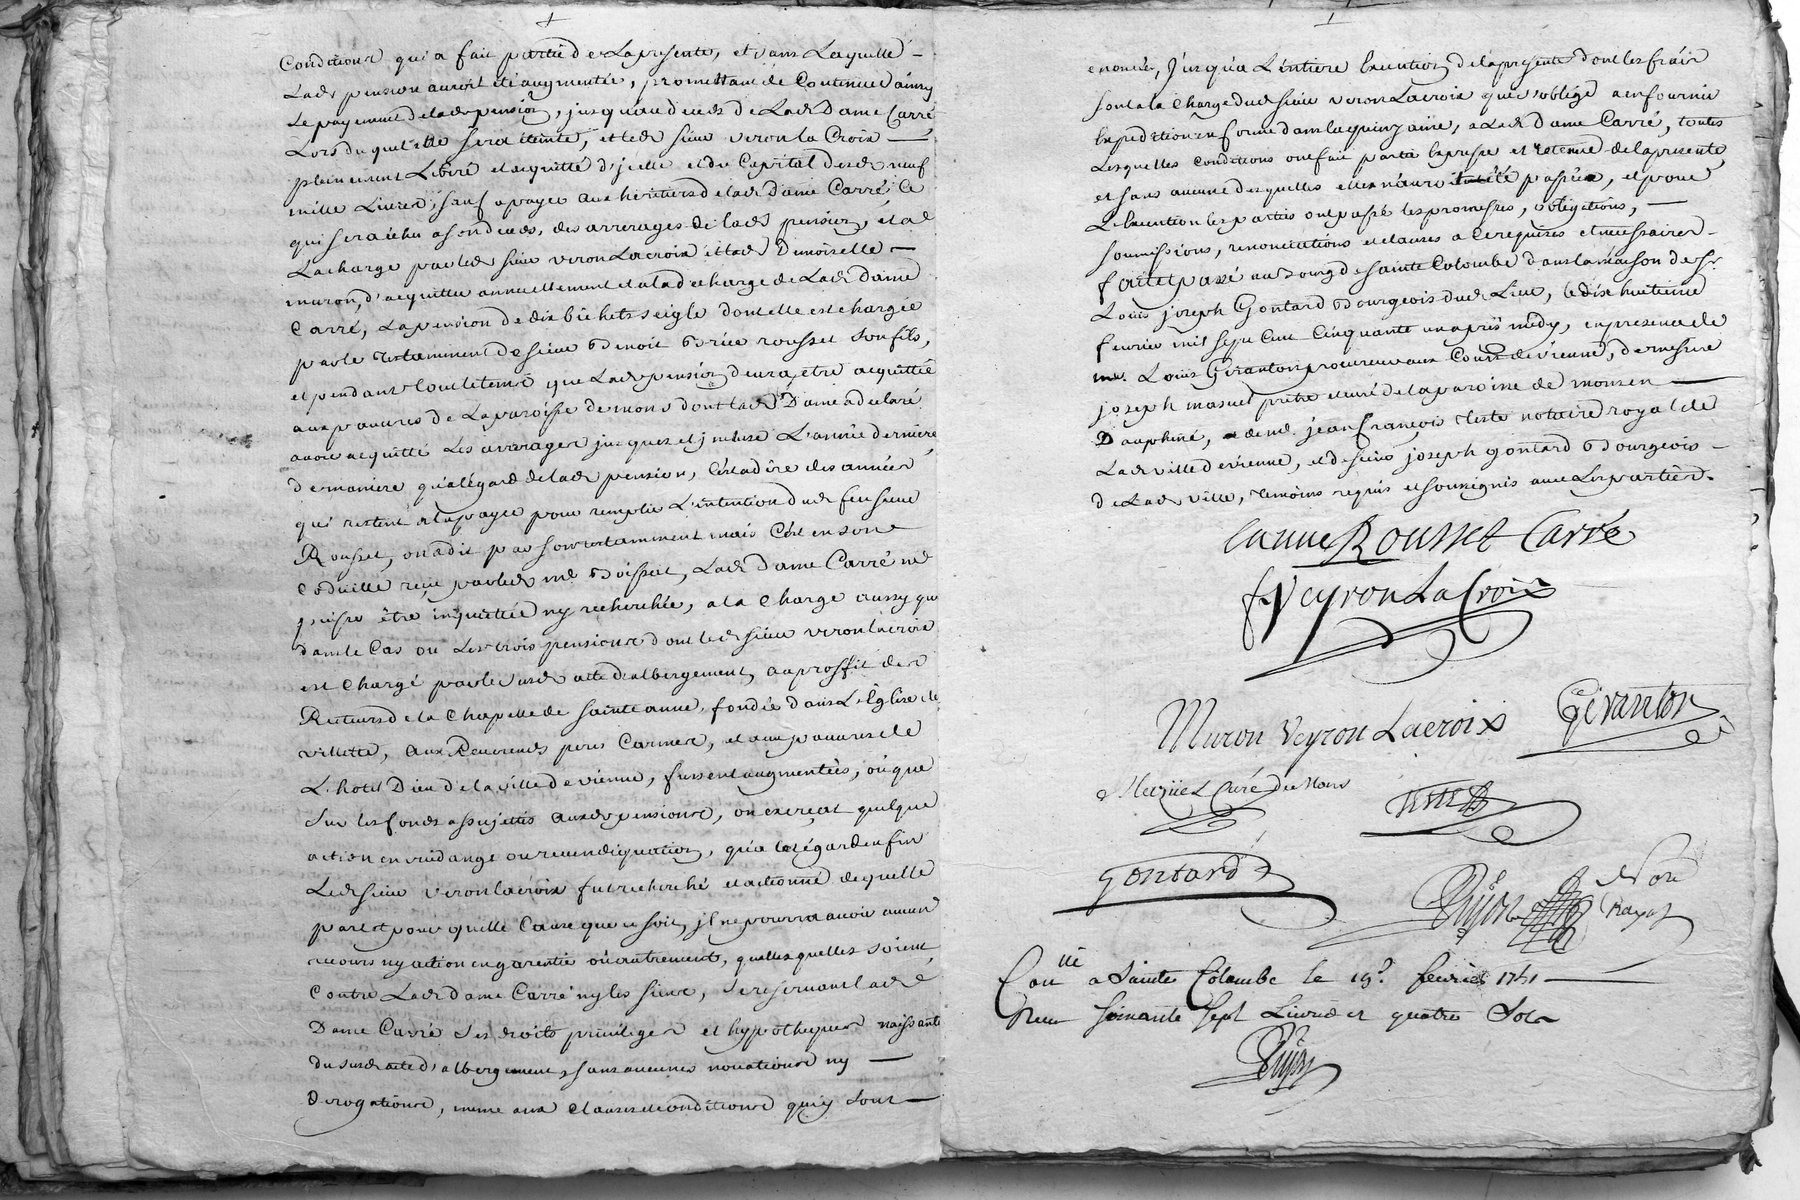 Conditions qui a fait partie de La presente, et sans Laquelle -
Lade pension auroit eté augmentée, promettant de Continuer ainsy
Le payement de lade pension, jusqu'au deced de Lade Dame Carré
Lors duquel elle sera éteinte, et led sieur veron la Croix —
pleinement Liberé et acquitté d'jcelle et du Capital desd neuf
mille Livres, sauf a payer aux heritiers de lade dame Carré Ce
qui sera échu a son deced, des arrerages de lade pension, et a
La charge par led sieur veron Lacroix et lad Demoiselle —
muron, d'acquitter annuellement et a la decharge de Lade dame
Carré, La pension de dix bichets seigle dont elle est chargée
par le testamment de sieur Benoit rousset son fils,
et pendant tout le tems que Lade pension devra etre acquittée
aux pauvres de La paroisse de mons dont lade Dame a declaré
avoir acquitté Les arrerages jusques et jncluse L'année derniere
de maniere qu'a l'égard de lade pension, C'est a dire des années
qui restent a la payer pour remplir L'intention dud feu sieur
Rousset, on a dit par son testamment mais C'est en son
Codicille reçu par led me Boissat, Lade dame Carré ne
puisse être inquiettée ny recherchée, a la Charge aussy que
dans le Cas ou Les trois pensions dont led sieur veron lacroix
est Chargé par le susd acte d'albergement, au proffit des
Recteurs de la Chapelle de sainte anne, fondée dans L'Eglise de
villette, aux Reverends peres Carmes, et aux pauvres de
L'hotel Dieu de la ville de vienne, fussent augmentées, ou que
sur les fonds assujettis auxd pensions, on exerçat quelque
action en vuidange ou revendiquation, qu'a cet égard enfin
Led sieur veron lacroix fut recherché et actionné de quelle
part et pour quelle Cause que ce soit, jl ne pourra avoir aucun
recours ny action en garentie ou autrement, quelles quelles soient,
Contre Lade dame Carré ny les siens, se reservant lade
Dame Carré ses droits privileges et hypotheques naissants
du susd acte d'albergement, sans aucunes novations ny —
Derogations, meme aux Clauses et conditions qui y sont —
enoncées, Jusqu'a L'entiere Execution de la presente dont les fraix
sont a la Charge dud sieur veron Lacroix qui s'oblige a en fournir
Expedition en forme dans la quinzaine, a Lade dame Carré, toutes
Lesquelles Conditions ont fait partie Expresse et retenue de la presente
et sans aucune desquelles elle n'auroit eté passée, et pour
L'Execution les parties ont passé les promesses, obligations, —
soumissions, renonciations et clauses a Ce requises et necessaires -
fait et passé au Bourg de sainte Colombe dans la maison de sr.
Louis joseph Gontard Bourgeois dud Lieu, le dix huitieme
fevrier mil sept Cent Cinquante un apres midy, en presence de
me. Louis Giranton procureur aux Cours de vienne, de messire
joseph masuel prêtre et curé de la paroisse de mons en —
Dauphiné, de me. jean françois teste notaire royal de
Lade ville de vienne, et de sieur joseph gontard Bourgeois -
de Lade ville, temoins requis et soussignés avec Les parties.
Rousset Carré
Veyron La Croix
Muron Veyron Lacroix
Giranton
Curé de Mons
Teste
Gontard
Guyon
Nore
Royal
Conlle a Sainte Colombe le 19e. fevrier 1751 —
Reçu soixante sept Livres et quatre Sols
Guyon